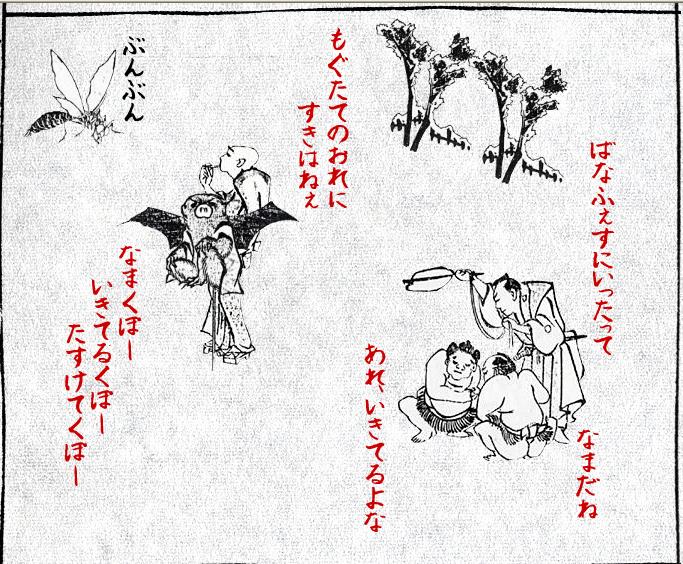 ばなふぇすにいったって
なまだね
あれ、いきてるよな
もぐたてのおれに
すきはねぇ
ぶんぶん
なまくぼー
いきてるくぼー
たすけてくぼー